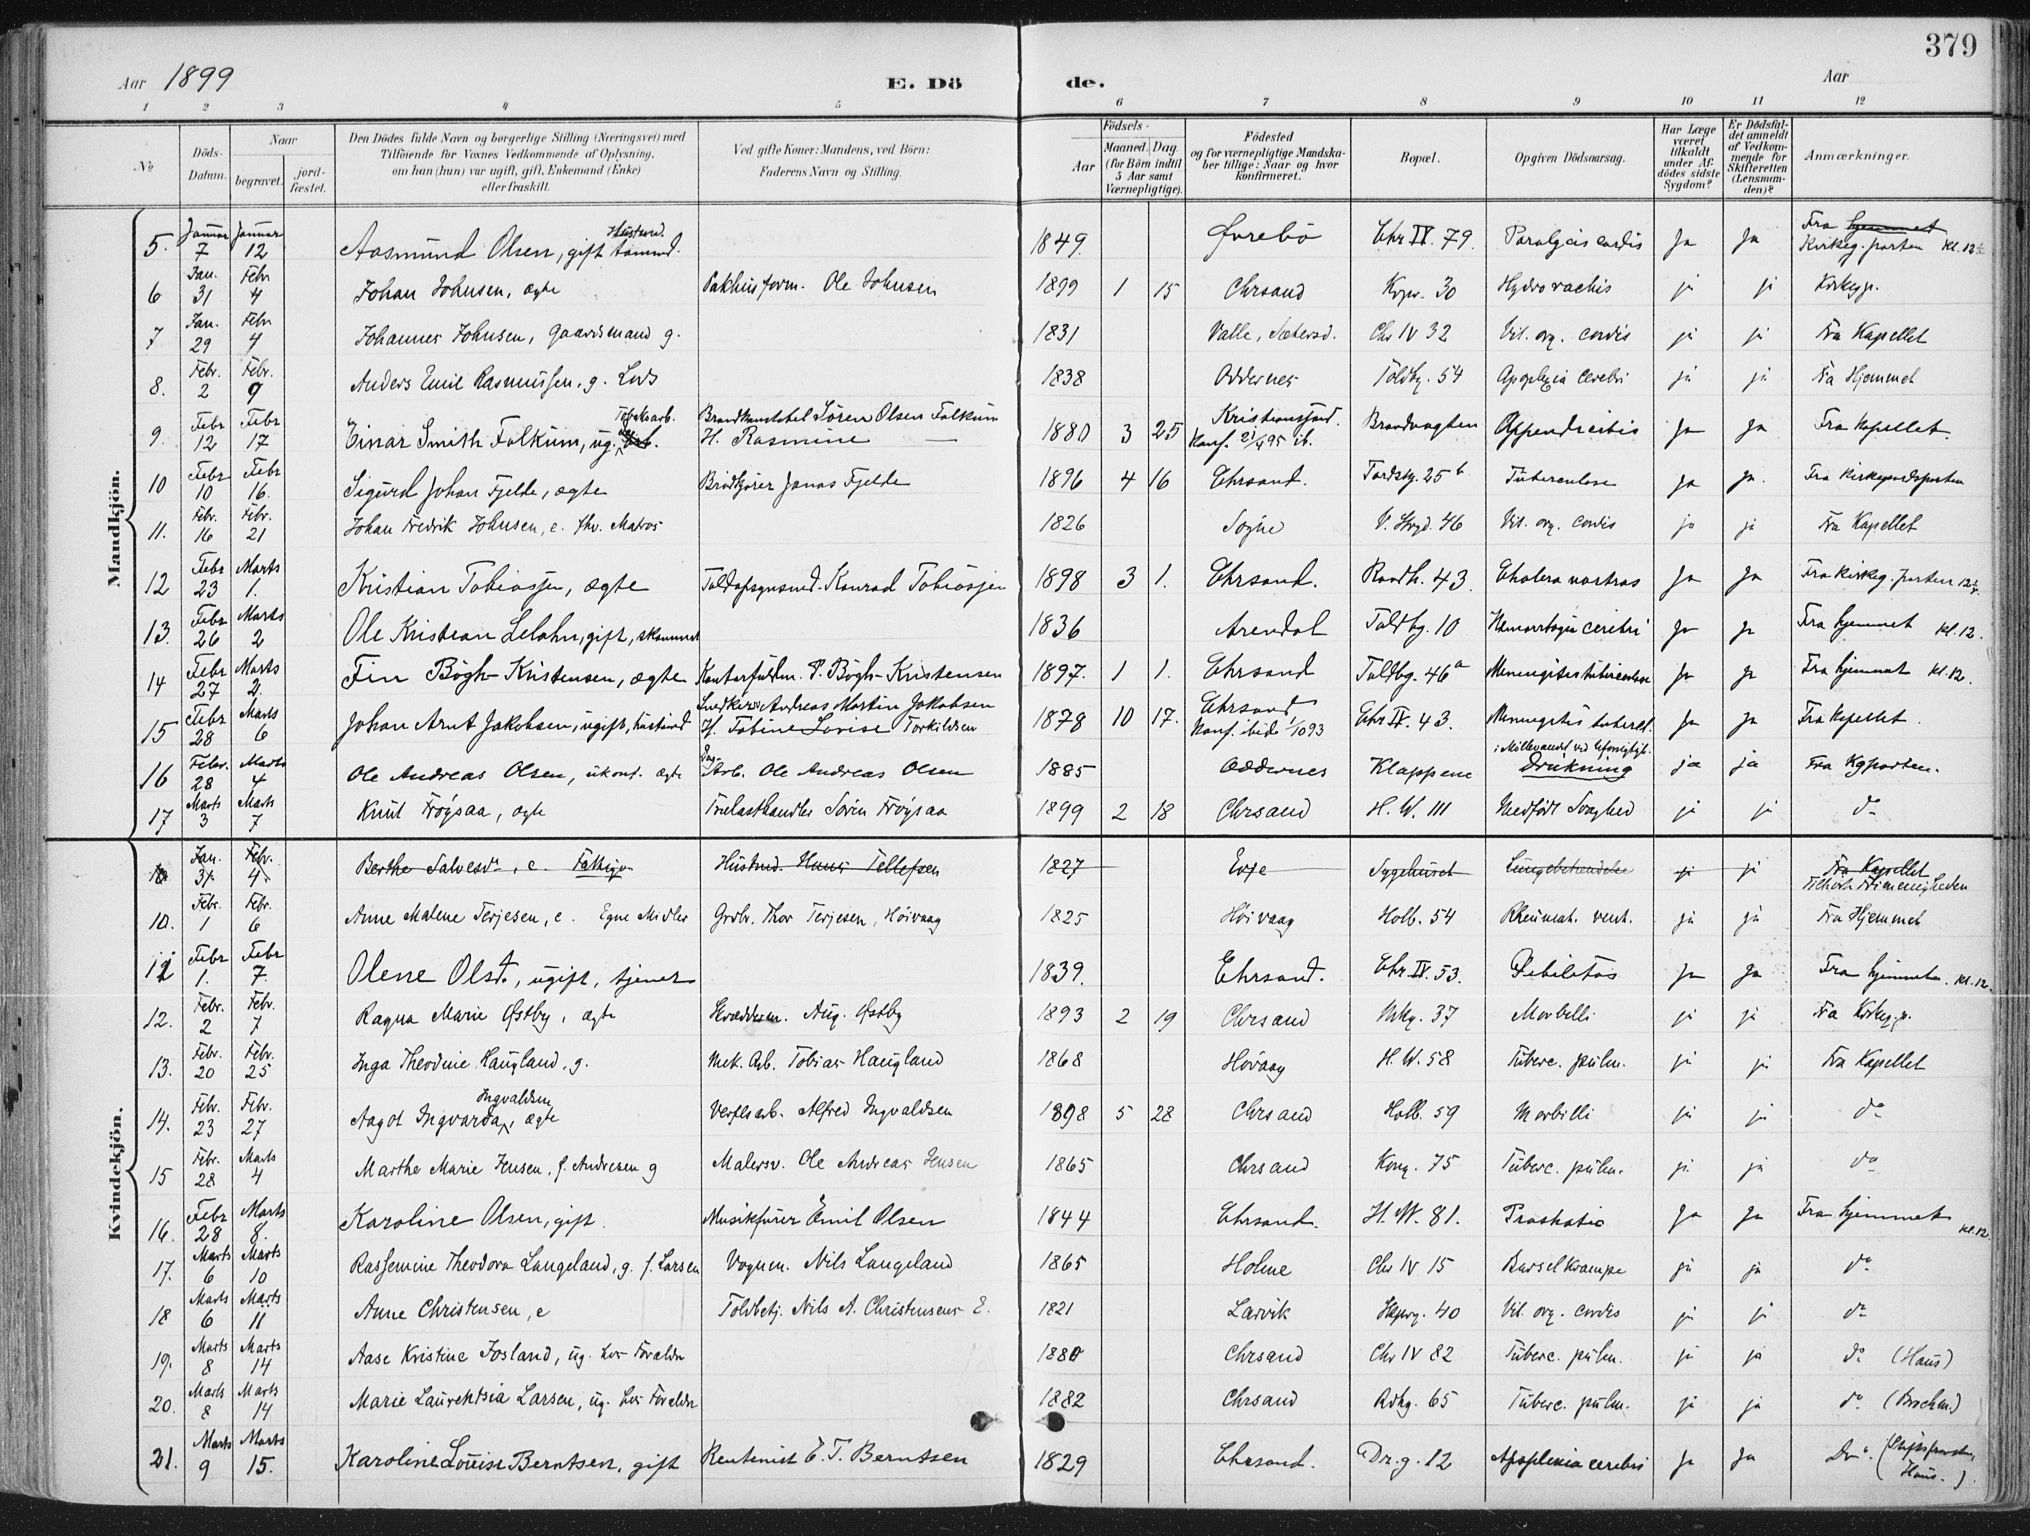 379
Aar 1899 E. Dö de. Aar
1 2 3 4 5 6 7 8 9 10 11 12
No
Döds-Datum.
Naar
begravet.
jord-fæstet.
Den Dödes fulde Navn og borgerlige Stilling (Næringsvei) med
Tilföiende for Voxnes Vedkommende af Oplysning,
om han (hun) var ugift, gift, Enkemand (Enke)
eller fraskilt.
Ved gifte Koner: Mandens, ved Börn:
Faderens Navn og Stilling.
Födsels-
Aar
Maaned. Dag.
(for Börn indtil
5 Aar samt
Værnepligtige).
Födested
og for værnepligtige Mandska-
ber tillige: Naar og hvor
Konfirmeret.
Bopæl.
Opgiven Dödsaarsag.
Har Læge
været
tilkaldt
under Af-
dödes sidste
Sygdom?
Er Dödsfal-
det anmeldt
af Vedkom-
mende for
Skifteretten
(Lensman-
den)?
Anmærkninger.
Mandkjön.
5. Januar 7 Januar 12 Aasmund Olsen, gift tømmd. 1849. Øvrebö Chr IV. 79. Paralysis cordis Ja Ja Fra hjemmet Kirkeg. porten kl. 12
6 Jan. 31 Febr 4 Johan Johnsen, ægte Pakhusform. Ole Johnsen 1899 1 15 Chrsand Kgv. 30 Hydrorachis ja ja Kirkegp.
7 Jan. 29 Febr 4 Johannes Johnsen, Gaardsmand g. 1831 Valle, Sætersd. Chr IV 32 Vit. org. cordis ja ja Fra Kapellet
8. Febr. 2 Febr. 9 Anders Emil Rasmussen, g. Lods 1838 Oddernes Toldbg. 54 Apoplexia cerebri ja ja Fra Hjemmet
9. Febr 12 Febr 17 Einar Smith Falkum, ug. Brandkonstabel Sören Olsen Falkum
H. Rasmine 1880 3 25 Kristianssand. Konf. 21/4 95 ib. Brandvagten Appendicitis Ja Ja Fra kapellet.
10 Febr 10 Febr 16. Sigurd Johan Fjelde, ægte Brödkjörer Jonas Fjelde 1896 4 16 Chrsand. Tordsky. 25 b Tuberculose Ja Ja. Fra kirkegaardsporten
11. Febr. 16 Febr. 21 Johan Fredrik Johnsen, e. fhv. Matros 1826 Sogne V. Strgd. 46 Vit. org. cordis ja ja Fra Kapellet
12 Febr 23 Marts 1. Kristian Tobiassen, ægte Toldopsynsmd. Konrad Tobiassen 1898 3 1. Chrsand. Raadh. 43. Cholera nostras Ja Ja Fra kirkeg. porten
13. Febr 26 Marts 2 Ole Kristian Lelohn, gift, 1836 Arendal Toldbg. 10 Hæmorrhagia cerebri Ja Ja Fra hjemmet kl. 12.
14 Febr 27 Marts 2. Fin Bögh-Kristensen, ægte Kontorfuldm. P. Bögh-Kristensen 1897. 1 1. Chrsand Toldbg. 46 a Meningitis tuberculosa Ja Ja Fra hjemmet kl. 12.
15 Febr 28 Marts 6 Johan Arnt Jakobsen, ugift, Snedker Andreas Martin Jakobsen
H. Tobine Lovise Torkildsen 1878 10 17. Chrsand Konf. ibid 1/10 93 Chr IV. 43. Meningitis tubercl. Ja Ja Fra kapellet.
16 Febr. 28 Marts 4 Ole Andreas Olsen, ukonf. ægte Dag Arb. Ole Andreas Olsen 1885 Oddernes Klappene Drukning ja ja Fra Kgporten.
17 Marts 3 Marts 7 Knut Frøysaa, ægte Trælasthandler Sören Frøysaa 1899 2 18 Chrsand H. W. 111 Medfödt Svaghed ja ja do
Kvindekjön.
Jan. 31 Febr. 4 Berthe Salvesdr, e. Fattigv Hustrud. Hans Tellefsen 1827 Evje Sygehuset Lungebetændelse ja ja Fra Kapellet
10. Febr. 1 Febr. 6 Anne Malene Terjesen, e. Egne Midler Grdbr. Thor Terjesen, Høivaag 1825 Høivaag Holb. 54 Rheumat. vent. ja ja Fra Hjemmet
11 Febr 1. Febr 7. Olene Olsdt., ugift, tjener 1839. Chrsand. Chr. IV. 53. Debilitas Ja Ja Fra hjemmet. kl. 12.
12. Febr. 2 Febr. 7 Ragna Marie Østby, ægte Skræddersv. Aug. Østby 1893 2 19 Chrsand Mkg. 37 Morbilli ja ja Fra Kirkeg.p.
13. Febr. 20 Febr. 25 Inga Theodine Haugland, g. Mek. Arb. Tobias Haugland 1868 Høvaag H. W. 58 Tuberc. pulm. ja ja Fra Kapellet
14. Febr. 23 Febr. 27 Aagot Ingvarda Ingvaldsen, ægte Verftsarb. Alfred Ingvaldsen 1898 5 28 Chrsand Holb. 59 Morbilli ja ja do
15 Febr. 28 Marts 4 Marthe Marie Jensen, f. Andresen g Malersv. Ole Andreas Jensen 1865 Chrsand Kong. 75 Tuberc. pulm. ja ja do
16. Febr 28 Marts 8. Karoline Olsen, gift. Musikfører Emil Olsen 1844 Chrsand. H. W. 81. Ja Ja Fra hjemmet kl. 12.
17. Marts 6 Marts 10 Rassemine Theodora Langeland, g. f. Larsen Vognm. Nils Langeland 1865 Holme Chr IV 15 Barselkrampe ja ja do
18 Marts 6 Marts 11 Anne Christensen, e Toldbetj. Nils A. Christensens E. 1821 Larvik Skprg. 40 Vit. org. cordis ja ja do
19. Marts 8 Marts 14 Aase Kristine Fosland, ug. hos Forældr 1880 Chrsand Chr IV 82 Tuberc. pulm. ja ja do (Haus)
20. Marts 8 Marts 14 Marie Laurentsia Larsen, ug. hos Forældr 1882 Chrsand Rdhg. 65 Tuberc. pulm. ja ja do
21. Marts 9 Marts 15. Karoline Louise Berntsen, gift Rentenist E. T. Berntsen 1829 Chrsand. Dr. g. 12 Apoplexia cerebri Ja Ja Do. (Stiftsprovsten, Haus.)